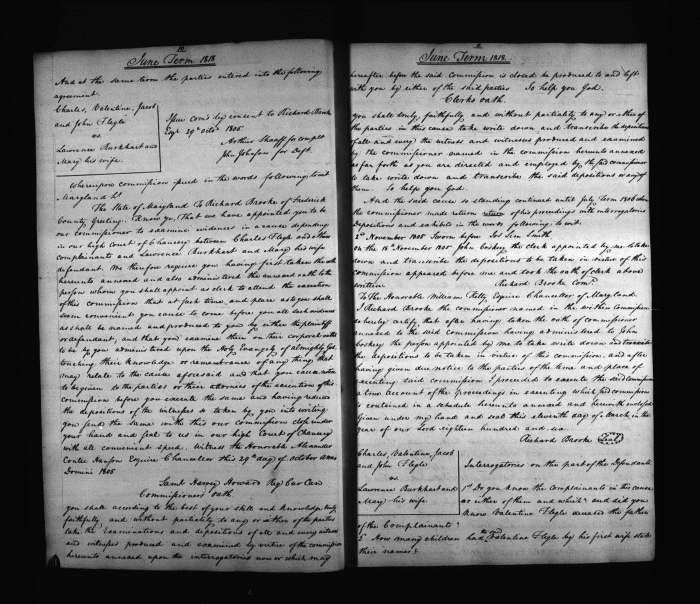 June Term 1818
And at the same term the parties entered into the following
agreement.
Charles, Valentine, Jacob
and John Flegle
vs
Lawrence Burkhart and
Mary his wife
Issue com's by consent to Richard Brooke
Esqr 29th Octr 1805
Arthur Shaaff for complt
John Johnson for Deft.
Whereupon commission issued in the words following, to wit
Maryland Sct
The State of Maryland To Richard Brooke of Frederick
County Greeting. Know ye, That we have appointed you to be
our commissioner to examine evidences in a cause depending
in our high Court of Chancery between Charles Flegle and others
complainants and Lawrence Burkhart and Mary his wife
defendant. We therefore require you having first taken the oath
hereunto annexed and also administered the annexed oath to the
person whom you shall appoint as clerk to attend the execution
of this commission that at such time, and place as to you shall
seem convenient you cause to come before you all such evidences
as shall be named and produced to you by either the plaintiff
or defendant, and that you examine them on their corporal oaths
to be by you administered upon the Holy Evangely of almighty God
touching their knowledge or remembrance of any thing that
may relate to the cause aforesaid and that you cause notice
to be given to the parties or their attornies of the execution of this
commission before you execute the same and having reduced
the depositions of the witnesses so taken by you into writing
you send the same with this our commission close under
your hand and seal to us in our high Court of Chancery
with all convenient speed. Witness the Honorable Alexander
Contee Hanson Esquire Chancellor this 29th day of October Anno
Domini 1805
Saml Harvey Howard Reg Cur Can
Commissioners Oath
you shall according to the best of your skill and knowledge truly
faithfully and without partiality to any or either of the parties
take the examinations and depositions of all and every witness
and witnesses produced and examined by virtue of the commission
hereunto annexed upon the interrogatories now or which may
June Term 1818.
hereafter before the said commission is closed be produced to and left
with you by either of the said parties So help you God.
Clerks oath.
you shall truly, faithfully and without partiality to any or either of
the parties in this cause take write down and transcribe the depositions
of all and every the witness and witnesses produced and examined
by the commissioner named in the commission hereunto annexed
as far forth as you are directed and employed by the sd commissioner
to take write down and transcribe the said depositions or any of
them. So help you God.
And the said cause so standing continued until July Term 1806 when
the commissioner made return return of his proceedings with interrogatories
Depositions and exhibits in the words following to wit.
2d November 1805 Sworn before Jos Sim Smith
on the 18th November 1805 John Coskery the clerk appointed by me to take
down and transcribe the depositions to be taken in virtue of this
commission appeared before me and took the oath of clerk above
written Richard Brooke Comr
To The Honorable William Kilty Esquire Chancellor of Maryland.
I Richard Brooke the commissioner named in the within commission
do hereby certify that after having taken the oath of commissioner
annexed to the said commission having administered to John
Coskery the person appointed by me to take write down and transcribe
the depositions to be taken in virtue of this commission and after
having given due notice to the parties of the time and place of
executing said commission I proceeded to execute the said commission
a true account of the proceedings in executing which sd commission
is contained in a schedule hereunto annexed and herewith enclosed
Given under my hand and seal this eleventh day of March in the
year of our Lord eighteen hundred and six
Richard Brooke Seal
Charles, Valentine, Jacob
and John Flegle
vs
Lawrence Burkhart and
Mary his wife
Interrogatories on the part of the Defendants.
1st Do you know the complainants in this cause
or either of them and which and did you
know Valentine Flegle deceased the father
of the Complainants?
2d How many children had the said Valentine Flegle by his first wife state
their names?